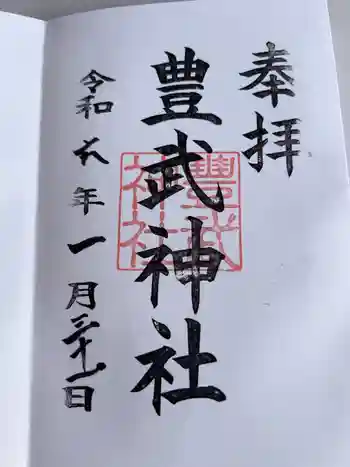 奉拝
豊武神社
令和六年一月三十一日
豐武
神社